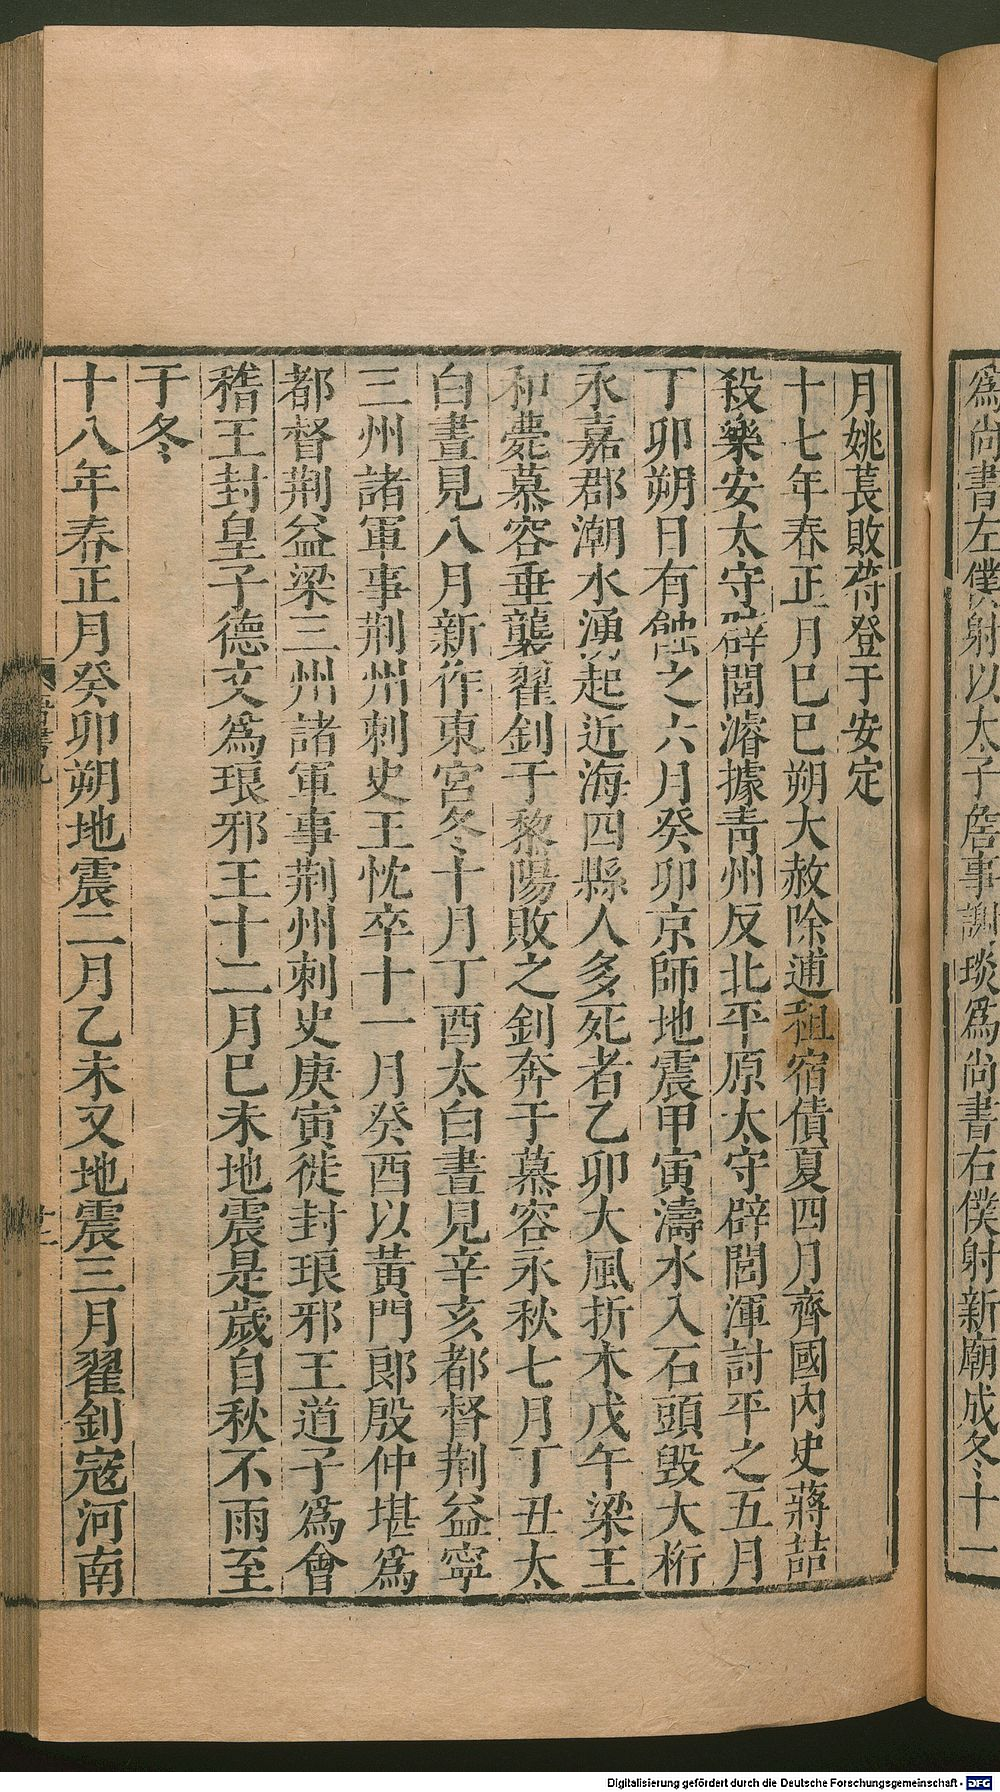 爲尚書左僕射以太子詹事謝琰爲尚書右僕射新廟成冬十一
月姚萇敗苻登于安定
十七年春正月巳巳朔大赦除逋租宿債夏四月齊國內史蔣喆
殺樂安太守辟閭濬據青州反北平原太守辟閭渾討平之五月
丁卯朔日有蝕之六月癸卯京師地震甲寅濤水入石頭毀大桁
永嘉郡潮水湧起近海四縣人多死者乙卯大風折木戊午梁王
和薨慕容垂襲翟釗于黎陽敗之釗奔于慕容永秋七月丁丑太
白晝見八月新作東宮冬十月丁酉太白晝見辛亥都督荆益寧
三州諸軍事荆州刺史王忱卒十一月癸酉以黃門郎殷仲堪爲
都督荆益梁三州諸軍事荆州刺史庚寅徙封琅邪王道子爲會
稽王封皇子德文爲琅邪王十二月巳未地震是歲自秋不雨至
于冬
十八年春正月癸卯朔地震二月乙未又地震三月翟釗寇河南
Digitalisierung gefördert durch die Deutsche Forschungsgemeinschaft - DFG